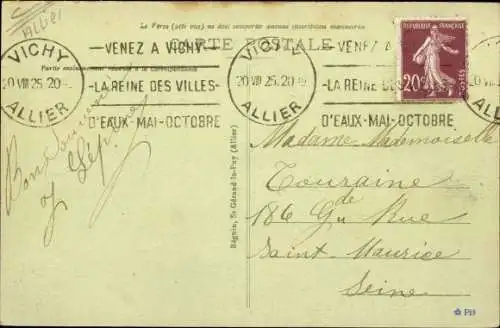 Allier
Le Verso (côté vue) ne doit comporter aucune inscription manuscrite
CARTE POSTALE
VICHY
20 VII 25. 20
ALLIER
VENEZ A VICHY
LA REINE DES VILLES
D'EAUX-MAI-OCTOBRE
VICHY
20 VII 25. 20
ALLIER
VENEZ A VICHY
LA REINE DES VILLES
D'EAUX-MAI-OCTOBRE
REPUBLIQUE FRANÇAISE
20c
POSTES
Bon souvenir
Béguin, St Gérand-le-Puy (Allier)
Madame Mademoiselle
Touraine
186 Gde Rue
Saint-Maurice
Seine
PD